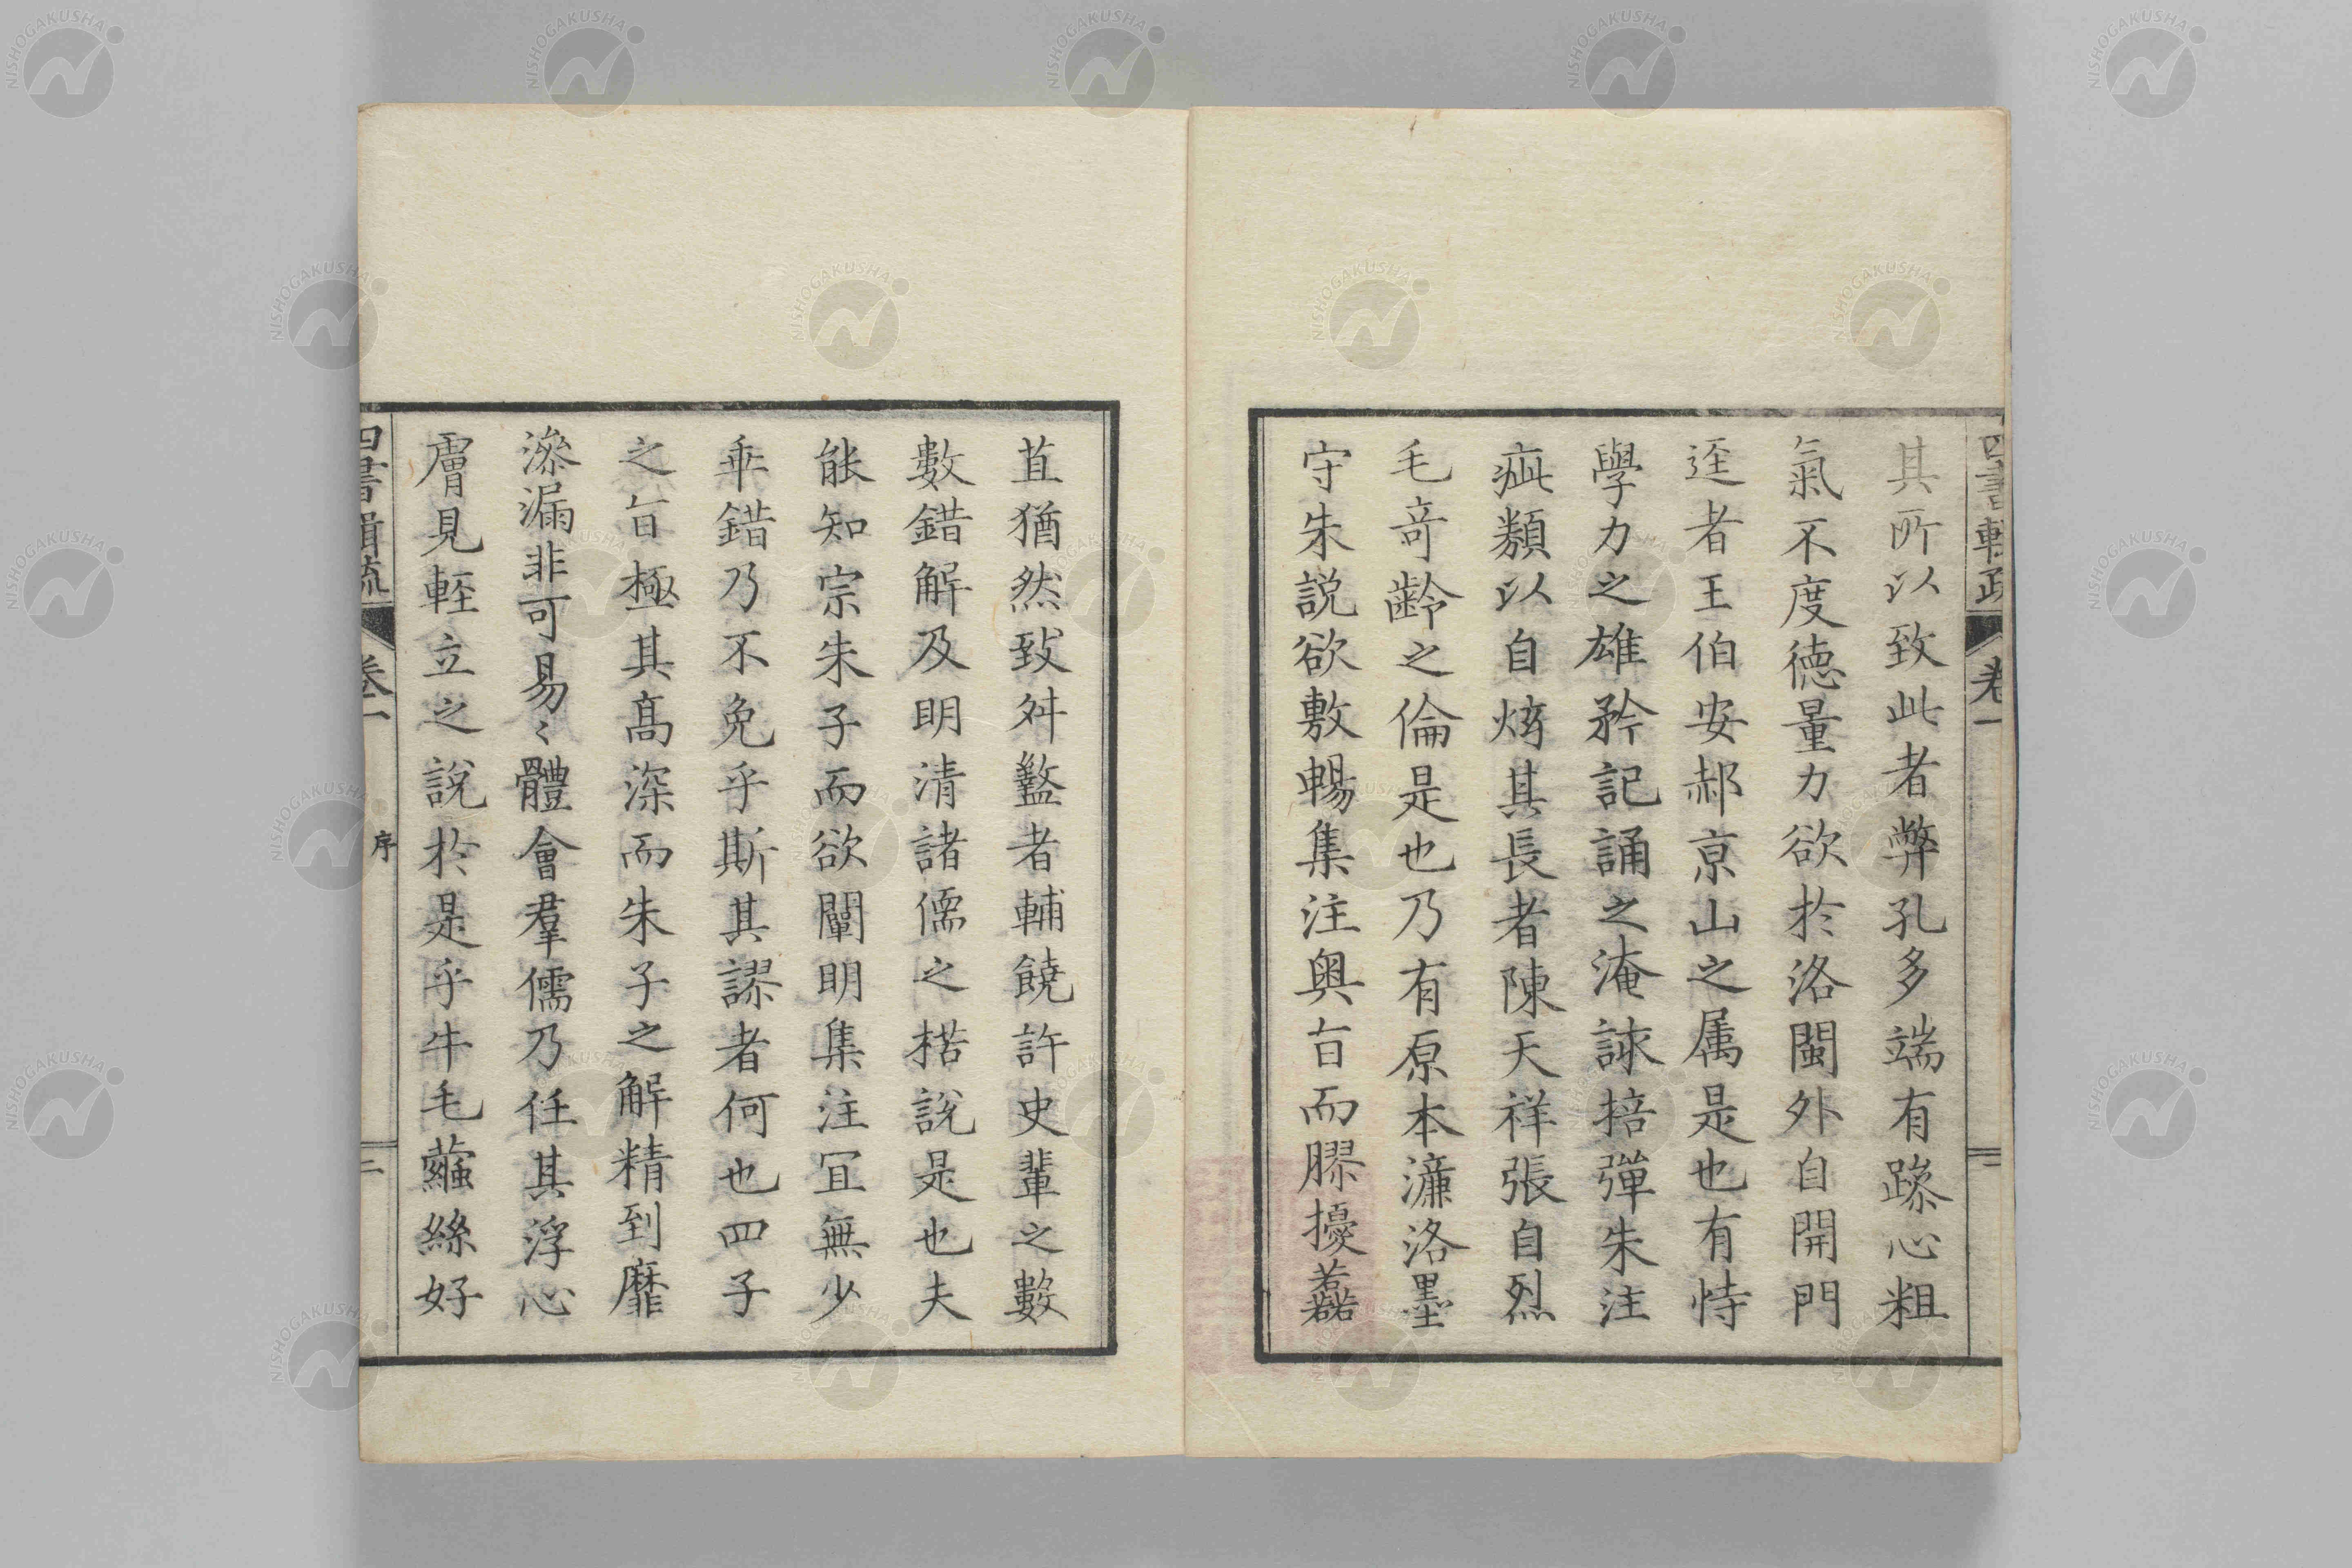 其所以致此者弊孔多端有蹂心粗
氣不度德量力欲於洛閩外自開門
逕者王伯安郝京山之属是也有恃
學力之雄矜記誦之淹諌掊彈朱注
疵纇以自炫其長者陳天祥張自烈
毛竒齡之倫是也乃有原本濂洛墨
守朱説欲敷暢集注奥㫖而膠擾
苴猶然致舛盭者輔饒許史輩之數
數錯解及明清諸儒之楛說是也夫
能知宗朱子而欲闡明集注冝無少
乖錯乃不免乎斯其謬者何也四子
之㫖極其髙深而朱子之解精到靡
滲漏非可易〻體會羣儒乃任其浮心
膚見輕立之說於是乎牛毛繭絲好
四書輯疏
卷一
序
二